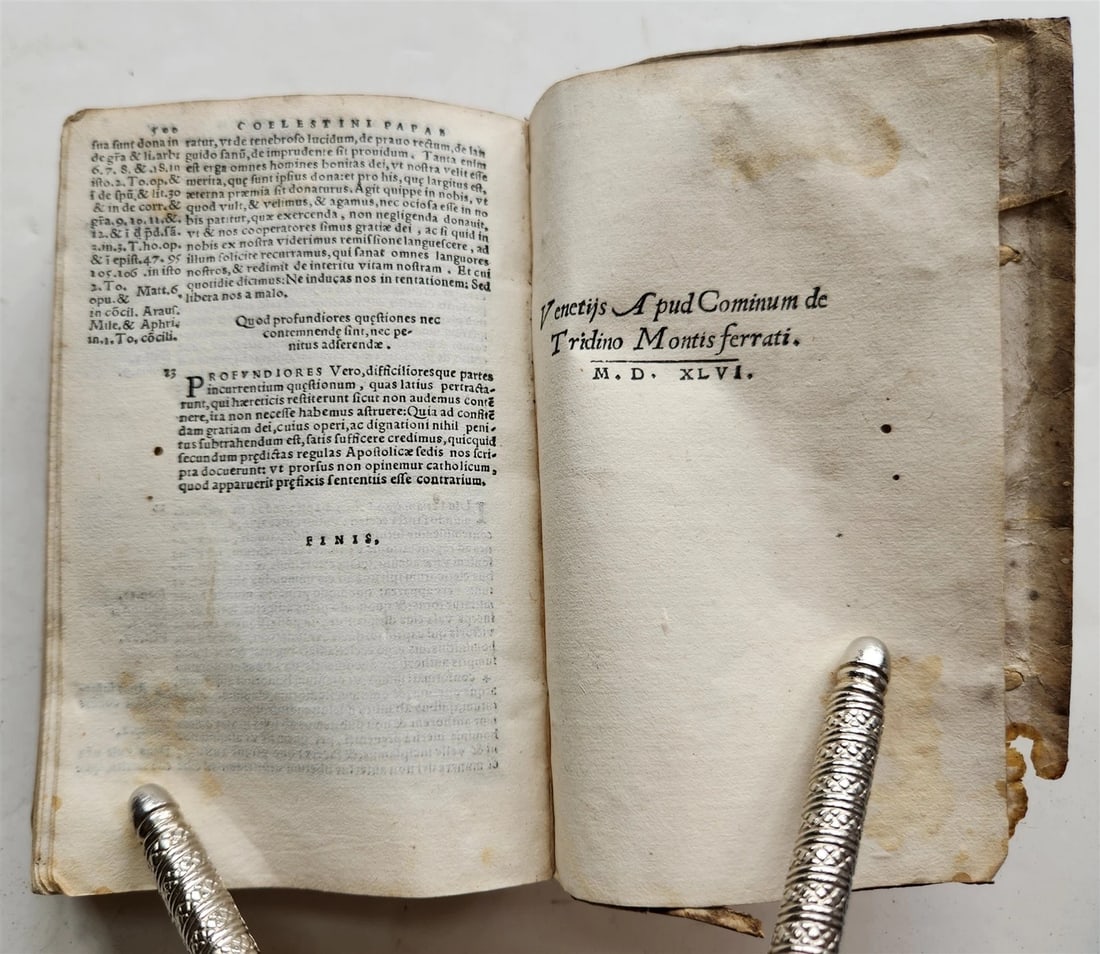 500
COELESTINI PAPAE
sua sunt dona in
de gr̃a & li. arbi
6. 7. 8. & .18. in
isto. 2. To. op. &
i de spũ, & lit. 30
& in de corr. &
gr̃a. 9. 10. 11. &.
12. & i d p̄d. sā.
2. in. 3. T. ho. op.
& ĩ epist. 47. 95
105. 106 . in isto
2. To.
opu. & Matt. 6
in cōcil. Arauſ.
Mile, & Aphri.
in. 1. To, cōcili.
ratur, vt de tenebroso lucidum, de prauo rectum, de lan
guido sanũ, de imprudente sit prouidum. Tanta enim
est erga omnes homines bonitas dei, vt nostra velit eſſe
merita, quę sunt ipsius dona: et pro his, quę largitus est,
æterna præmia sit donaturus. Agit quippe in nobis, vt
quod vult, & velimus, & agamus, nec ociosa eſſe in no
bis patitur, quæ exercenda , non negligenda donauit,
vt & nos cooperatores simus gratiæ dei , ac si quid in
nobis ex nostra viderimus remiſſione languescere , ad
illum solicite recurramus, qui sanat omnes languores
nostros, & redimit de interitu vitam nostram . Et cui
quotidie dicimus: Ne inducas nos in tentationem; Sed
libera nos a malo.
Quod profundiores quęstiones nec
contemnendę sint, nec pe-
nitus adserendæ .
23
PROFVNDIORES Vero, difficilioresque partes
incurrentium quęstionum , quas latius pertracta-
runt, qui hæreticis restiterunt sicut non audemus contē
nere, ita non neceſſe habemus astruere: Quia ad confitē
dam gratiam dei, cuius operi, ac dignationi nihil peni-
tus subtrahendum est, satis sufficere credimus, quicquid
secundum prędictas regulas Apostolicæ sedis nos scri-
pta docuerunt: vt prorsus non opinemur catholicum,
quod apparuerit pręfixis sententiis eſſe contrarium.
FINIS,
Venetijs Apud Cominum de
Tridino Montisferrati.
M. D. XLVI.